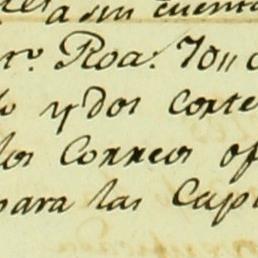 a sin cuenta
Roa. 70
y dos corte
los Correos of
para las Cap